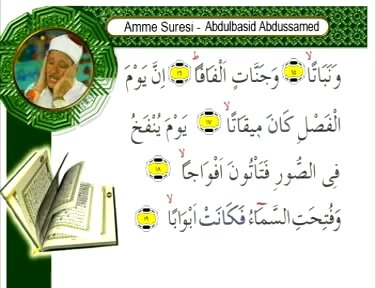 Amme Suresi - Abdulbasid Abdussamed
وَنَبَاتًاۙ ﴿١٥﴾ وَجَنَّاتٍ اَلْفَافًاۜ ﴿١٦﴾ اِنَّ يَوْمَ
الْفَصْلِ كَانَ مٖيقَاتًاۙ ﴿١٧﴾ يَوْمَ يُنْفَخُ
فِي الصُّورِ فَتَأْتُونَ اَفْوَاجًاۙ ﴿١٨﴾
وَفُتِحَتِ السَّمَٓاءُ فَكَانَتْ اَبْوَابًاۙ ﴿١٩﴾